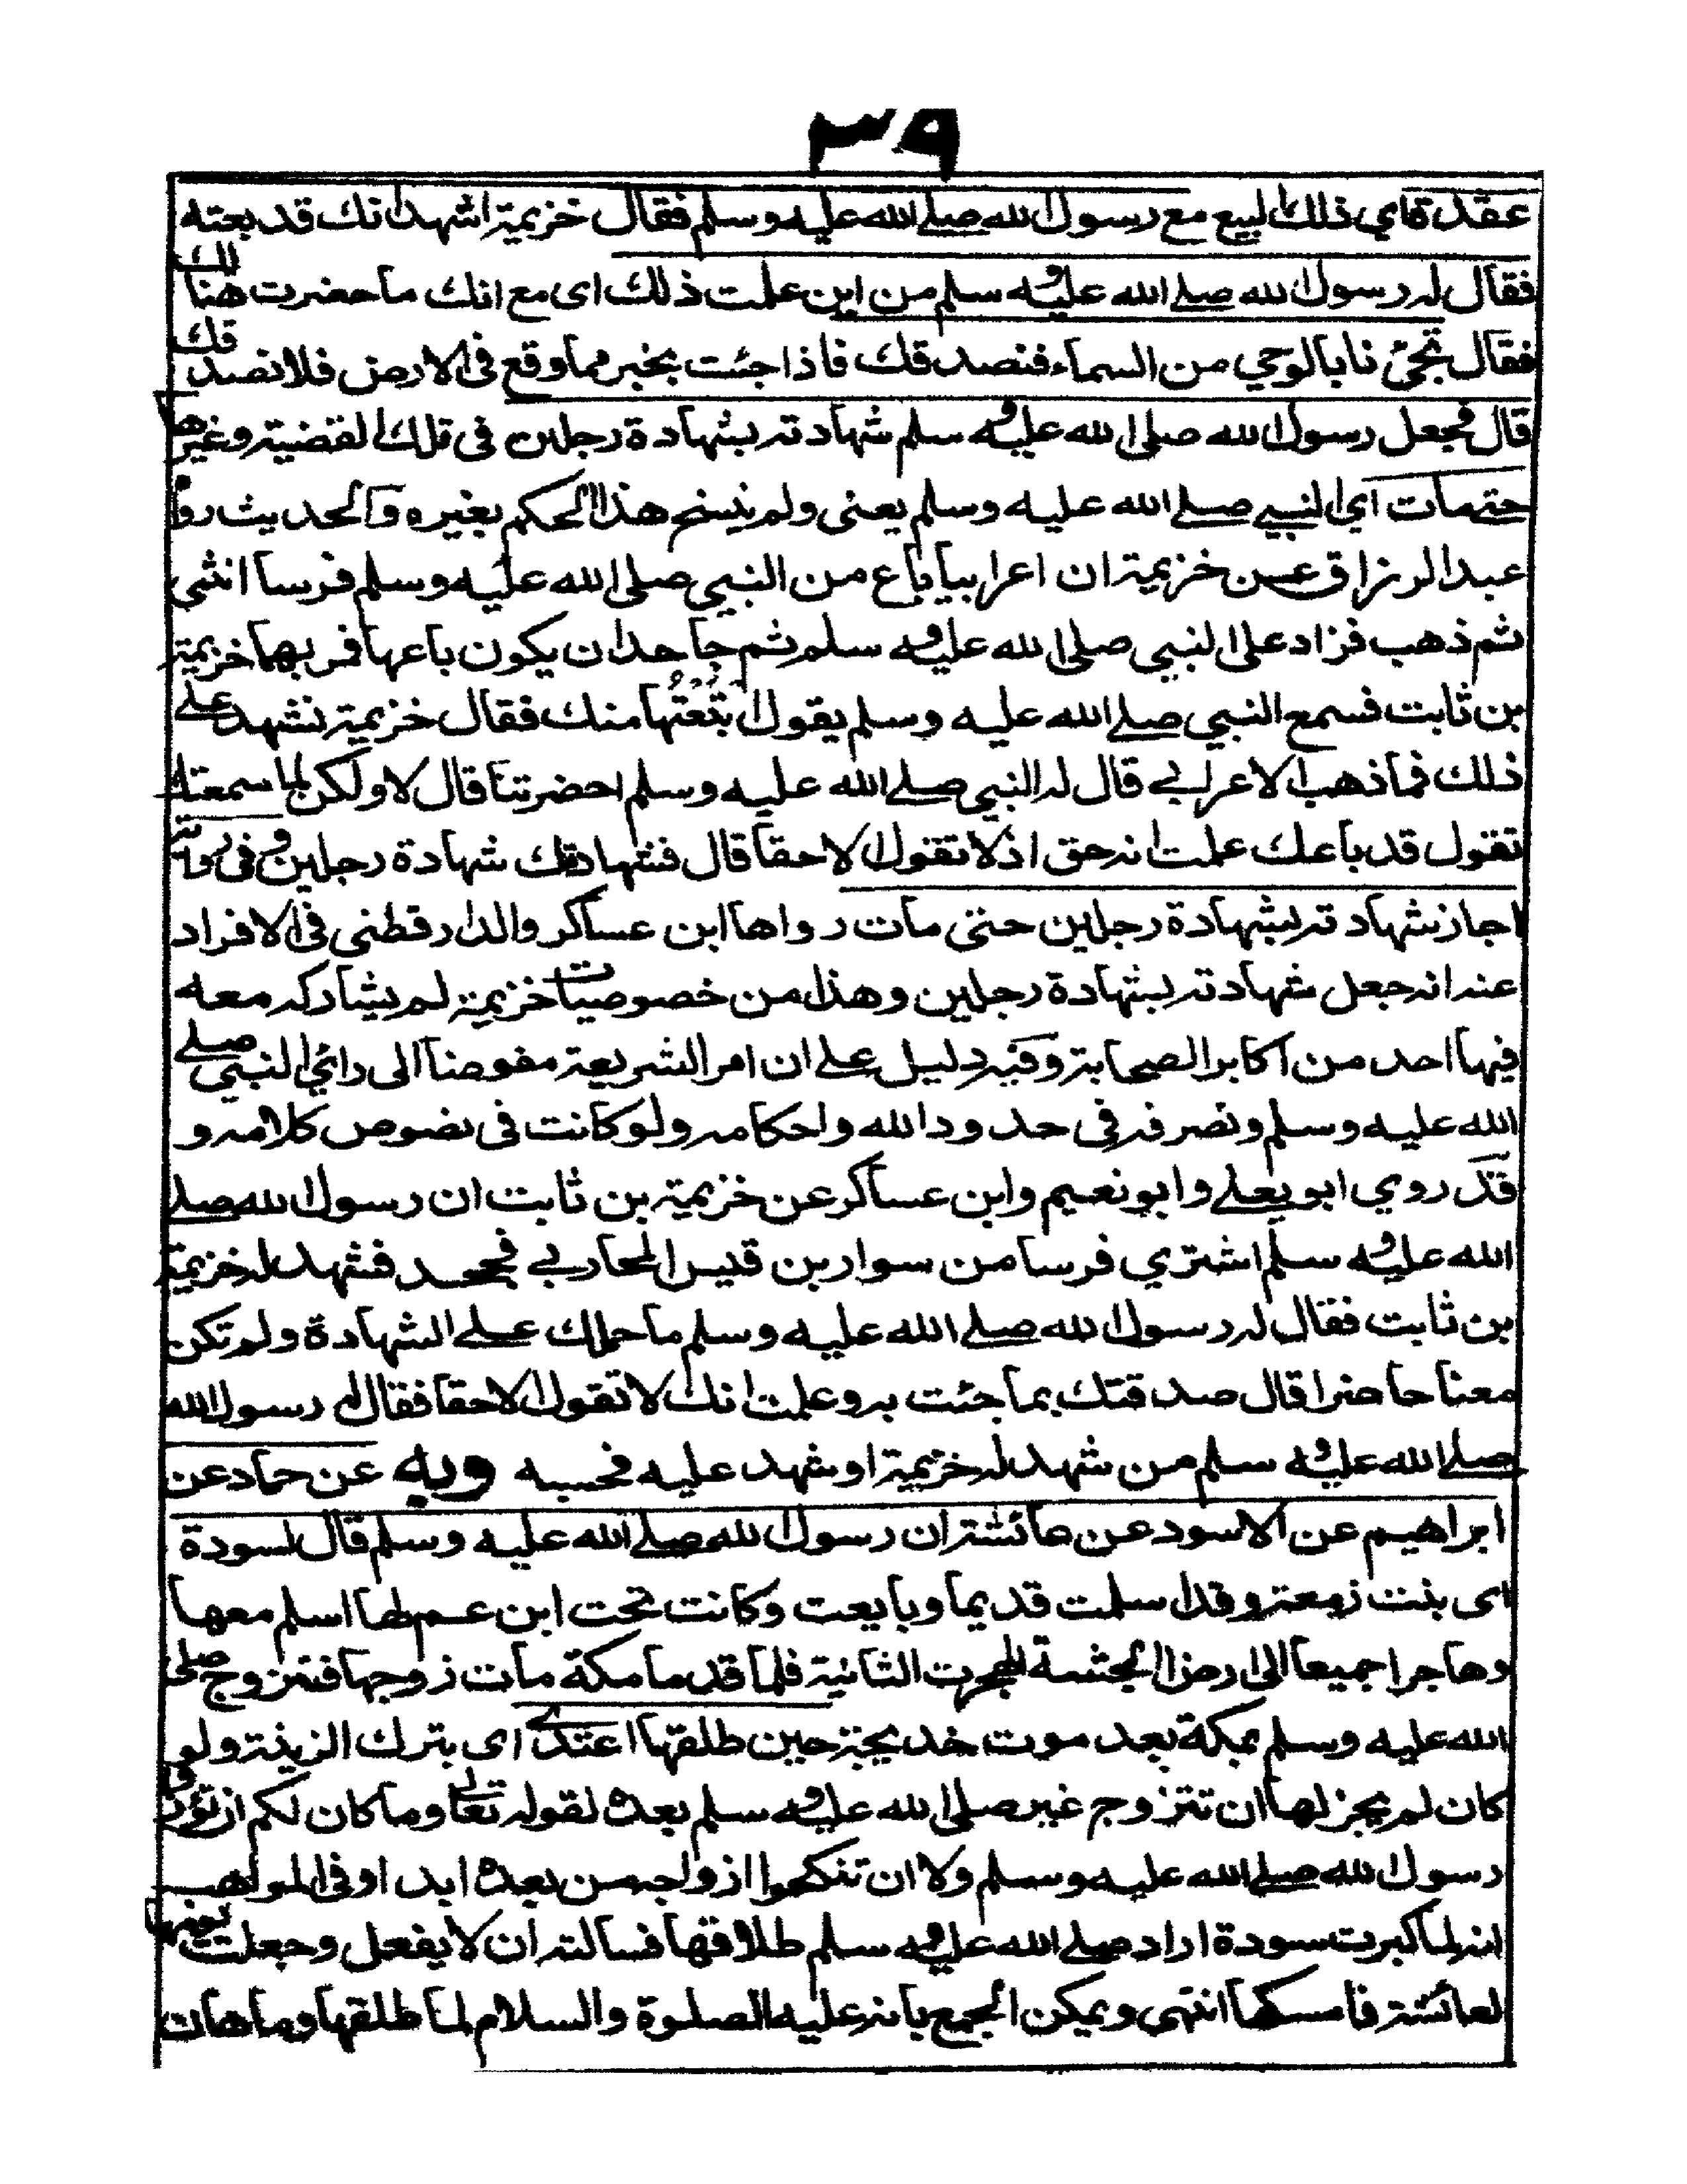 ٣٩
عقدة اي ذلك البيع مع رسول الله صلے الله عليه وسلم فقال خزيمة اشهد انك قد بعته
فقال له رسول الله صلے الله عليه وسلم من اين علمت ذلك اى مع انك ما حضرت هنالك
فقال تجئ نا بالوحي من السماء فنصدقك فاذا جئت بخبر مما وقع فى الارض فلا نصدقك
قال فجعل رسول الله صلى الله عليه وسلم شهادته بشهادة رجلين فى تلك القضية وغيرها
حتے مات اي النبي صلے الله عليه وسلم يعنى ولم ينسخ هذا الحكم بغيره والحديث رواه
عبد الرزاق عن خزيمة ان اعرابيا باع من النبي صلى الله عليه وسلم فرسا انثى
ثم ذهب فزاد على النبي صلى الله عليه وسلم ثم جاحد ان يكون باعها فمر بهما خزيمة
بن ثابت فسمع النبي صلے الله عليه وسلم يقول بتعتها منك فقال خزيمة نشهد علے
ذلك فما ذهب الاعرابے قال له النبي صلے الله عليه وسلم احضرتنا قال لا ولكن لما سمعتك
تقول قد باعك علمت انه حق اذ لا تقول الا حقا قال فشهادتك شهادة رجلين وفى رواية
اجاز شهادته بشهادة رجلين حتى مات رواها ابن عساكر والدارقطنى فى الافراد
عنه انه جعل شهادته بشهادة رجلين وهذا من خصوصيات خزيمة لم يشاركه معه
فيها احد من اكابر الصحابة وفيه دليل علے ان امر الشريعة مفوضا الى رائي النبي صلے
الله عليه وسلم وتصرفه فى حدود الله واحكامه ولو كانت فى نصوص كلامه و
قد روي ابو يعلے وابو نعيم وابن عساكر عن خزيمة بن ثابت ان رسول الله صلے
الله عليه وسلم اشتري فرسا من سوار بن قيس المحاربے فجحد فشهد له خزيمة
بن ثابت فقال له رسول الله صلے الله عليه وسلم ما حملك علے الشهادة ولم تكن
معنا حاضرا قال صدقتك بما جئت به وعلمت انك لا تقول الا حقا فقال له رسول الله
صلے الله عليه وسلم من شهد له خزيمة او شهد عليه فحسبه وبه عن حماد عن
ابراهيم عن الاسود عن عائشة ان رسول الله صلے الله عليه وسلم قال لسودة
اى بنت زمعة وقد اسلمت قديما وبايعت وكانت تحت ابن عم لها اسلم معها
وهاجرا جميعا الى ارض الحبشة الهجرت الثانية فلما قدما مكة مات زوجها فتزوج صلى
الله عليه وسلم بمكة بعد موت خديجة حين طلقها اعتدے اى بترك الزينة ولو
كان لم يجز لها ان تتزوج غير صلى الله عليه وسلم بعده لقوله تعالے وما كان لكم ان تؤذوا
رسول الله صلے الله عليه وسلم ولا ان تنكحوا ازواجه من بعده ابدا وفى المواهب
انه لما كبرت سودة اراد صلے الله عليه وسلم طلاقها فسالته ان لا يفعل وجعلت يومها
لعائشة فامسكها انتهى ويمكن الجمع بانه عليه الصلوة والسلام لما طلقها وما هان